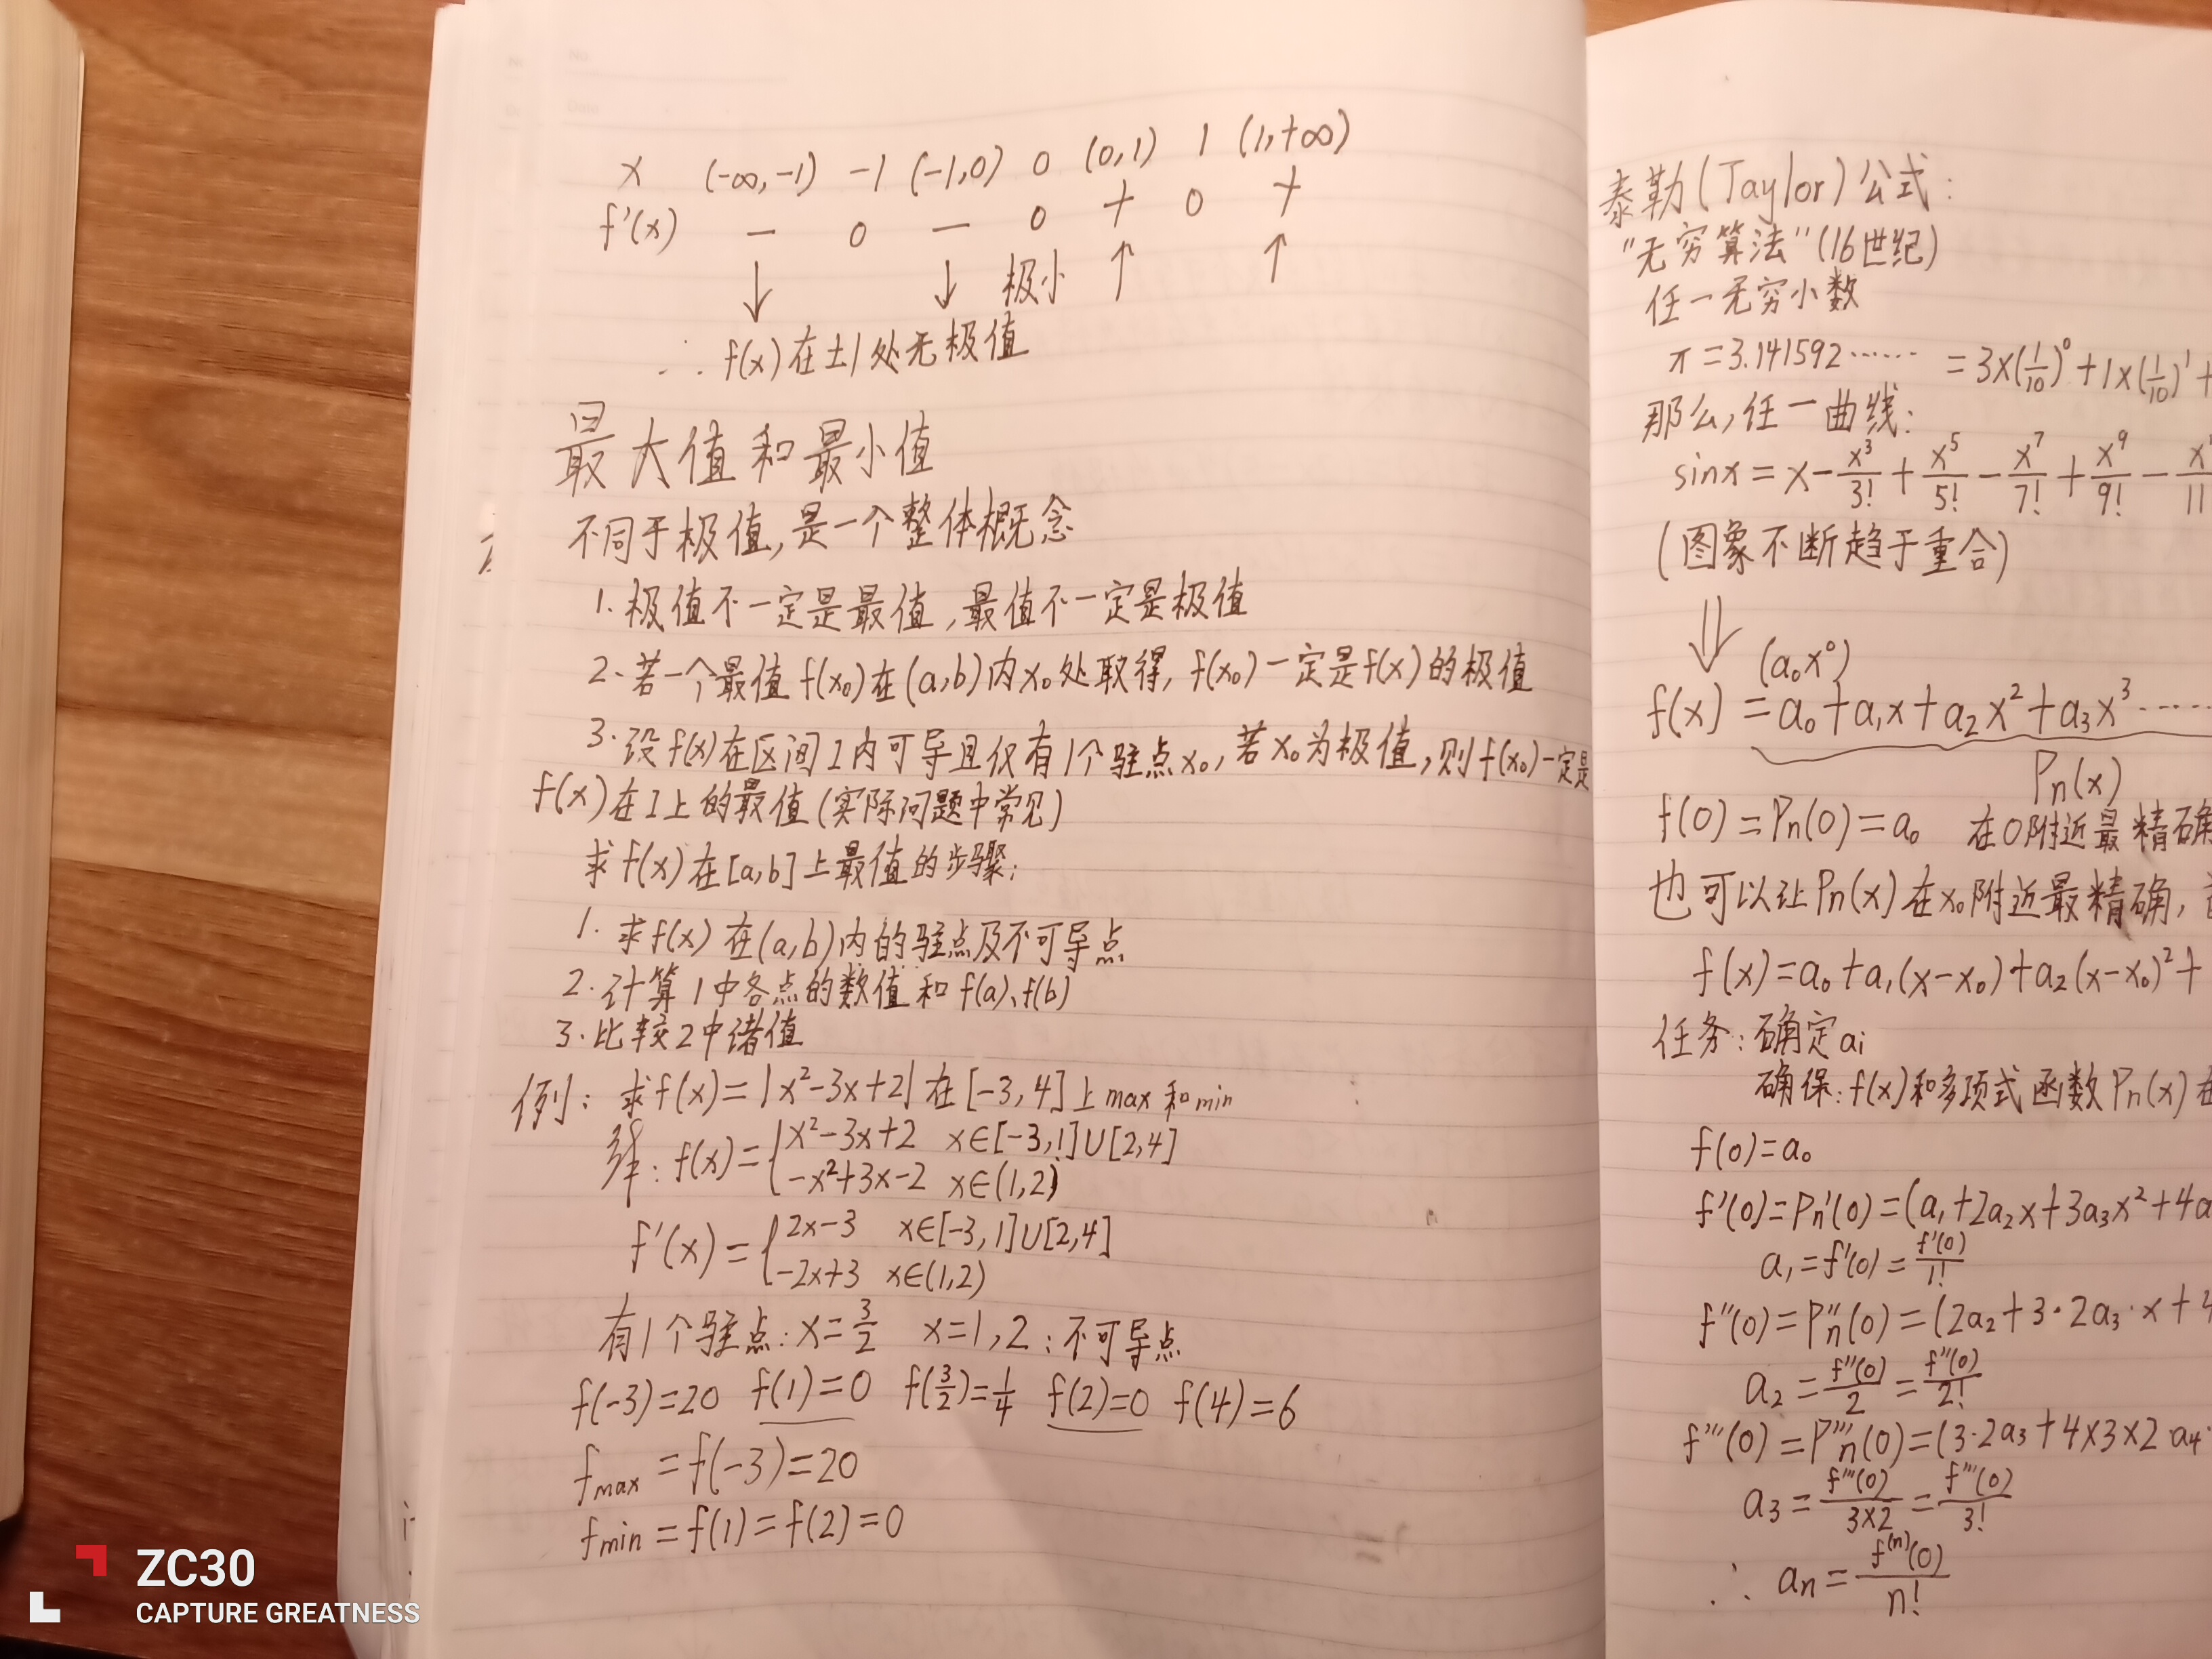 x (-∞,-1) -1 (-1,0) 0 (0,1) 1 (1,+∞)
f'(x) — 0 — 0 + 0 +
↓ ↓ 极小 ↑ ↑
∴ f(x)在±1处无极值
最大值和最小值
不同于极值,是一个整体概念
1.极值不一定是最值,最值不一定是极值
2.若一个最值f(x₀)在(a,b)内x₀处取得,f(x₀)一定是f(x)的极值
3.设f(x)在区间I内可导且仅有1个驻点x₀,若x₀为极值,则f(x₀)一定是
f(x)在I上的最值(实际问题中常见)
求f(x)在[a,b]上最值的步骤:
1.求f(x)在(a,b)内的驻点及不可导点
2.计算1中各点的数值和f(a)、f(b)
3.比较2中诸值
例:求f(x)=|x²-3x+2|在[-3,4]上max和min
解:f(x)={x²-3x+2 x∈[-3,1]∪[2,4]
-x²+3x-2 x∈(1,2)
f'(x)={2x-3 x∈[-3,1]∪[2,4]
-2x+3 x∈(1,2)
有1个驻点:x=3/2 x=1,2:不可导点
f(-3)=20 f(1)=0 f(3/2)=1/4 f(2)=0 f(4)=6
fmax=f(-3)=20
fmin=f(1)=f(2)=0
泰勒(Taylor)公式:
"无穷算法"(16世纪)
任一无穷小数
π=3.141592…… =3×(1/10)⁰+1×(1/10)¹+
那么,任一曲线:
sinx=x-x³/3!+x⁵/5!-x⁷/7!+x⁹/9!-
(图象不断趋于重合)
⇓ (a₀x⁰)
f(x)=a₀+a₁x+a₂x²+a₃x³……
Pn(x)
f(0)=Pn(0)=a₀ 在0附近最精确
也可以让Pn(x)在x₀附近最精确,
f(x)=a₀+a₁(x-x₀)+a₂(x-x₀)²+
任务:确定ai
确保:f(x)和多项式函数Pn(x)在
f(0)=a₀
f'(0)=Pn'(0)=(a₁+2a₂x+3a₃x²+4a
a₁=f'(0)=f'(0)/1!
f''(0)=Pn''(0)=(2a₂+3·2a₃·x+4
a₂=f''(0)/2=f''(0)/2!
f'''(0)=Pn'''(0)=(3·2a₃+4×3×2·a₄·
a₃=f'''(0)/3×2=f'''(0)/3!
∴ an=f⁽ⁿ⁾(0)/n!
ZC30
CAPTURE GREATNESS